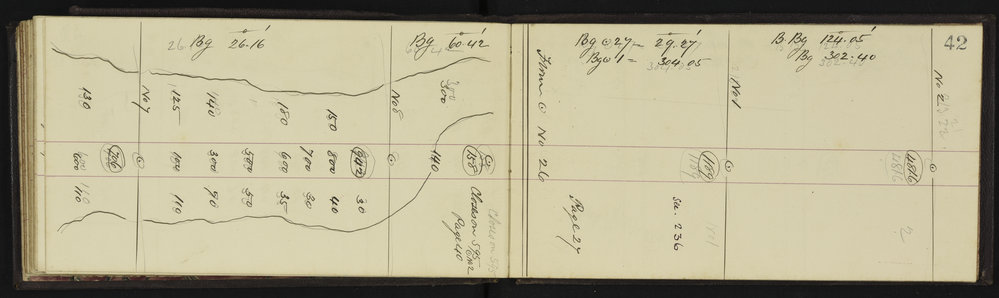 26. Bg 26°.16'
Bg 60°.42'
300
130
No 7
125
140
180
150
No 8
140
158
600
206
100
300
500
600
700
800
902
110
110
90
50
35
30
40
30
Closes on 595
Page 40
Bg @ 27 = 29°.27'
Bg @ 1 = 304.05
B. Bg 124°.05'
Bg 302.40
42
From @ No 26
No 1
No 2
1189
4816
su. 236
Page 27